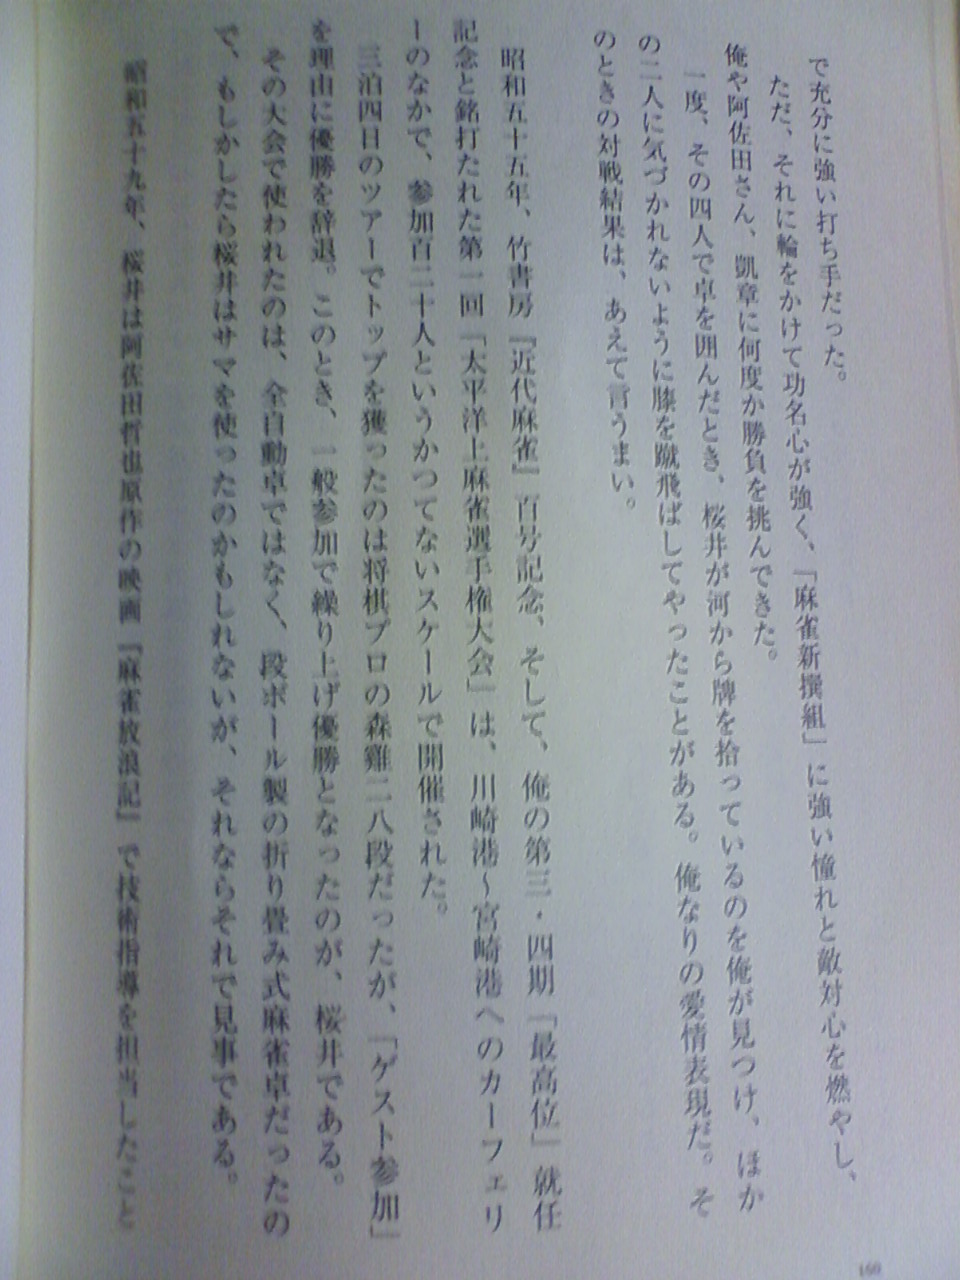 で充分に強い打ち手だった。
ただ、それに輪をかけて功名心が強く、「麻雀新撰組」に強い憧れと敵対心を燃やし、
俺や阿佐田さん、凱章に何度か勝負を挑んできた。
一度、その四人で卓を囲んだとき、桜井が河から牌を拾っているのを俺が見つけ、ほか
の二人に気づかれないように膝を蹴飛ばしてやったことがある。俺なりの愛情表現だ。そ
のときの対戦結果は、あえて言うまい。
昭和五十五年、竹書房『近代麻雀』百号記念、そして、俺の第三・四期「最高位」就任
記念と銘打たれた第一回「太平洋上麻雀選手権大会」は、川崎港～宮崎港へのカーフェリ
ーのなかで、参加百二十人というかつてないスケールで開催された。
三泊四日のツアーでトップを獲ったのは将棋プロの森雞二八段だったが、「ゲスト参加」
を理由に優勝を辞退。このとき、一般参加で繰り上げ優勝となったのが、桜井である。
その大会で使われたのは、全自動卓ではなく、段ボール製の折り畳み式麻雀卓だったの
で、もしかしたら桜井はサマを使ったのかもしれないが、それならそれで見事である。
昭和五十九年、桜井は阿佐田哲也原作の映画『麻雀放浪記』で技術指導を担当したこと
160